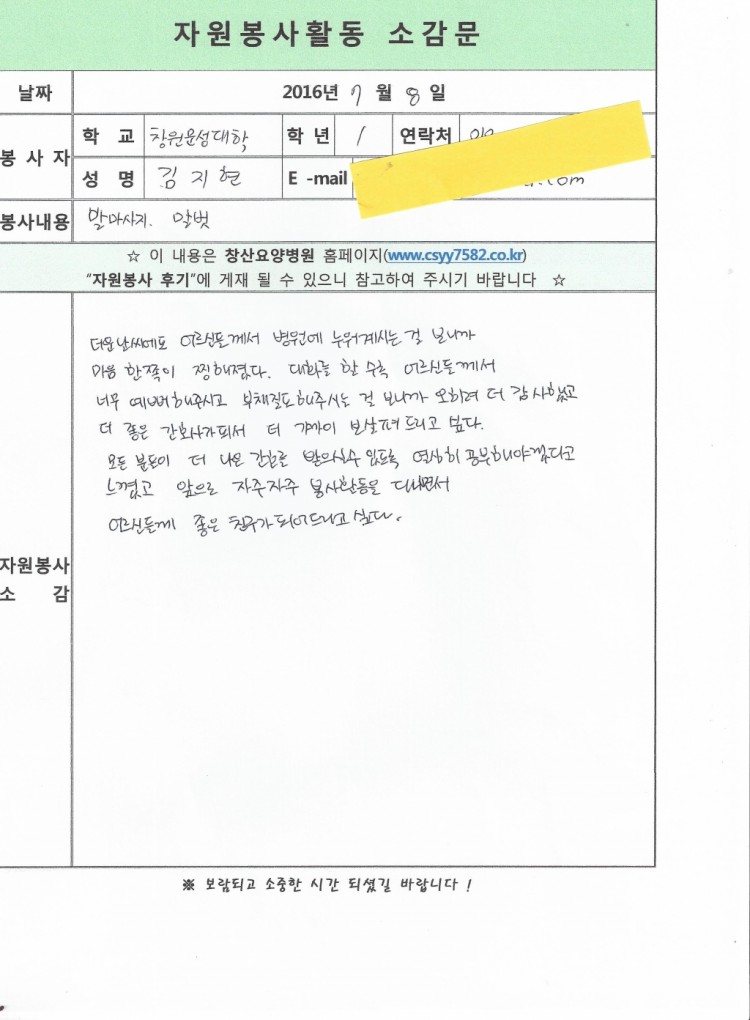 자원봉사활동 소감문
날짜 2016년 7 월 8 일
봉 사 자 학 교 창원문성대학 학 년 1 연락처 010
성 명 김 지 현 E -mail .com
봉사내용 발마사지. 말벗
☆ 이 내용은 창산요양병원 홈페이지(www.csyy7582.co.kr)
"자원봉사 후기"에 게재 될 수 있으니 참고하여 주시기 바랍니다 ☆
더운날씨에도 어르신들께서 병원에 누워계시는 걸 보니까
마음 한쪽이 찡해졌다. 대화를 할 수록 어르신들께서
너무 예뻐해주시고 부채질도해주시는 걸 보니까 오히려 더 감사했고
더 좋은 간호사가되서 더 가까이 보살펴 드리고 싶다.
모든 분들이 더 나은 간호를 받으실수 있도록 열심히 공부해야겠다고
느꼈고 앞으로 자주자주 봉사활동을 다니면서
어르신들께 좋은 친구가되어드리고 싶다.
자원봉사
소 감
※ 보람되고 소중한 시간 되셨길 바랍니다 !